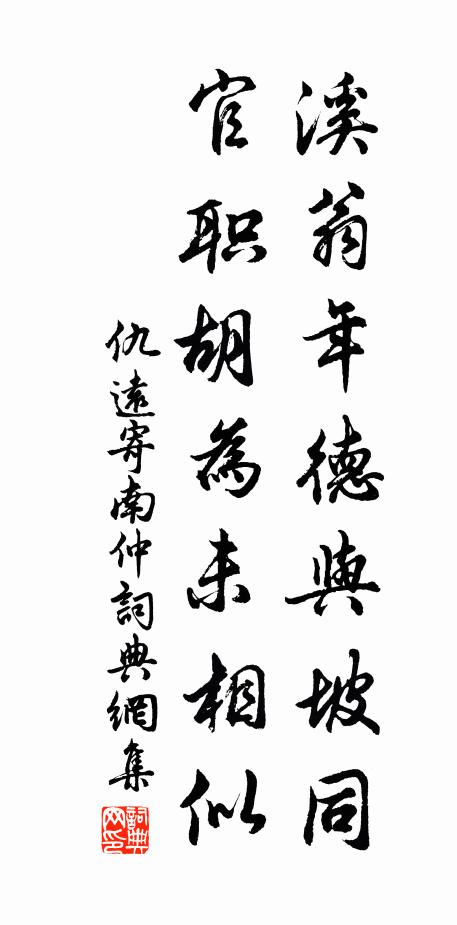 溪翁年德與坡同
官职胡為未相似
仇遠寄南仲詞典網集
詞典网印